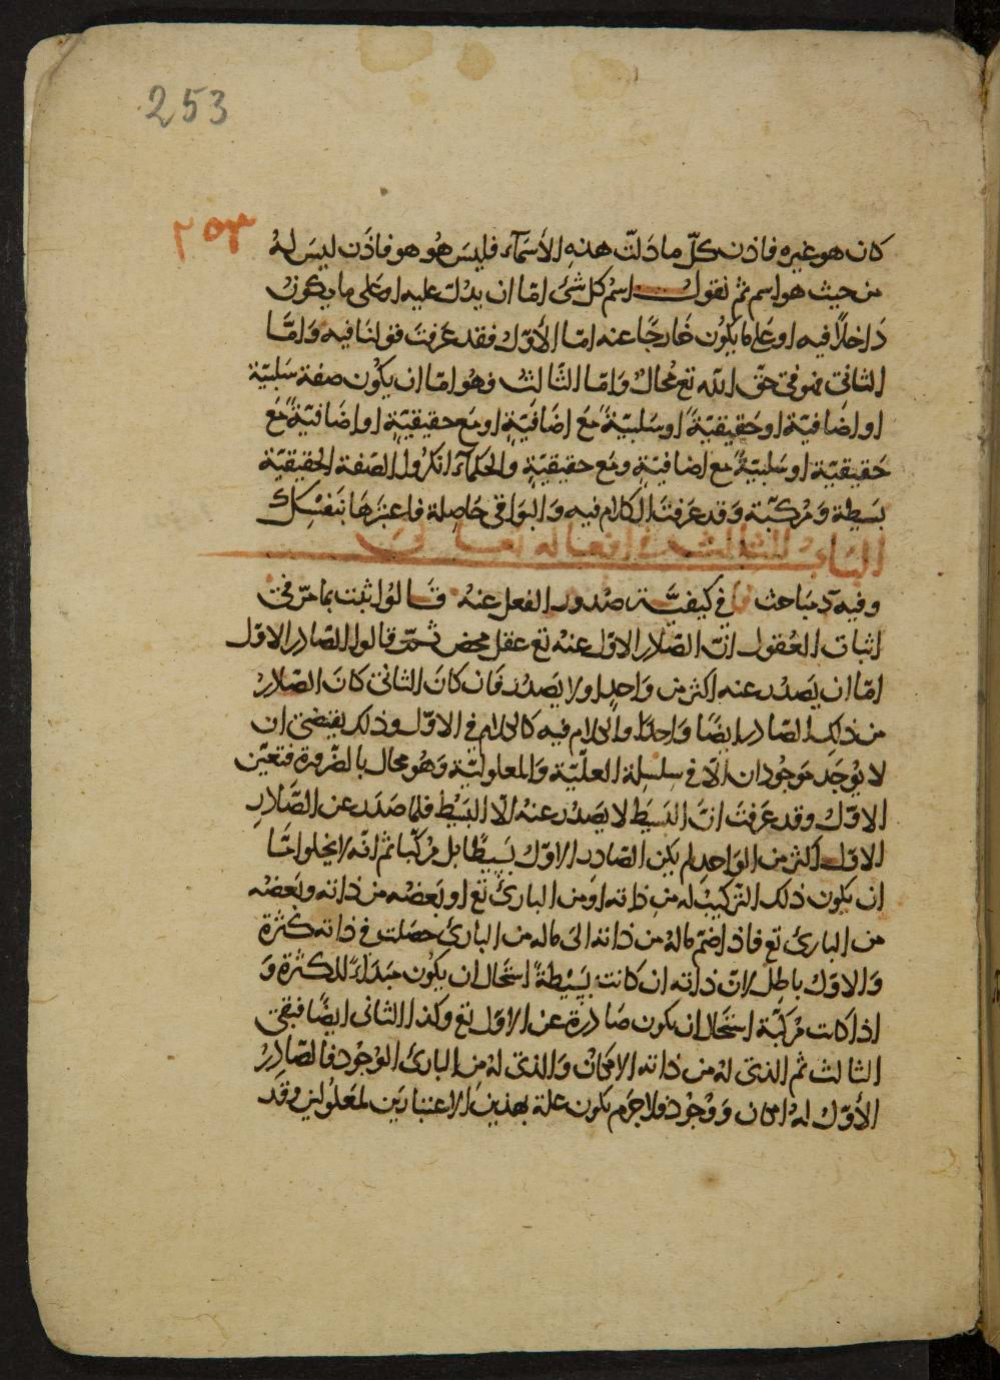 253
٢٥٣
كان هو غيره فاذن كلّ ما دَلّت هذهِ الأسَمآء فليسَ هُو هو فاذَن ليسَ لهُ
من حيث هو اسم ثم نقول اسْم كل شئ امّا ان يدلّ عليه او على ما يكون
دَاخلاً فيه او عَلى ما يكون خَارجًا عنه امّا الأوّل فقد عَرفتَ قولنَا فيه وَامّا
الثانى فهو فى حقّ الله تع مُحال وَامّا الثّالث وهُو امّا ان يكون صفة سَلبيّة
او اضَافيّة او حَقيقيّةً او سَلبيّةً مَعَ اضَافيّةٍ او مَع حقيقيّةٍ او اضَافيّةً مَع
حَقيقيّة او سَلبيّةً مع اضافيةٍ ومَع حقيقيّةٍ والحكمآء انكرُوا الصّفة الحقيقيّة
بَسيطة وَمُركّبة وَقد عَرفتَ الكلام فيه وَالبوَاقى حَاصِلة فاعتبرَهَا بنَفسِك
البَاب الثالث فى افعاله تعالى
وفيه مبَاحث فى كيفيَّة صُدور الفعل عنهُ قَالوُا ثبت بما مرّ فى
اثبات العُقول انّ الصّادر الاوّل عنه تع عقل محض ثمّ قالوا الصّادر الاوّل
امّا ان يَصدُر عنه اكثر من وَاحدٍ او لا يَصدُر فَان كانَ الثانى كانَ الصّادرُ
من ذلِك الصّادر ايضًا وَاحدًا والكلام فيه كالكلام فى الاوّل وذلك يقتضى ان
لا يوُجَد مَوجُودان الّا فى سِلسِلة العلّيّة وَالمعلوليّة وَهُو محال بالضّرورة فتعيّن
الاوّل وقد عَرفتَ انّ البَسيَط لا يصَدُر عنهُ الّا البَسيْط فلمّا صَدَر عن الصَّادِرِ
الاوّل اكثر من الوَاحدِ لم يكن الصّادر الاوّل بَسِيطًا بل مركّبا ثم انّه لا يخلوا امّا
ان يكون ذلك التّركيبُ له من ذاته اوَ من البارئ تع او بَعضُه من ذاته وبعَضُه
من البارئ تع فاذا ضمّ مَا لهُ من ذاته الىَ ما له من البارئ حصَلت فى ذاته كثرة
وَالاوّل باطِل لانّ ذاته ان كانت بَسِيْطةً استحَال ان يكوُن مَبدَاءً للكثرة وَ
اذا كانت مُركّبة استحَال ان يكون صَادرةً عن الاوّل تع وكذا الثانى ايضًا فبقى
الثالث ثم الذى لهُ من ذاته الامكان وَالذى لهُ من البارئ الوُجُود فالصّادِرُ
الأوّل لهُ امكان وَوُجُود فلا جرَم يكون علة بهذين الاعتبارَين لمعَلُولين وقَد